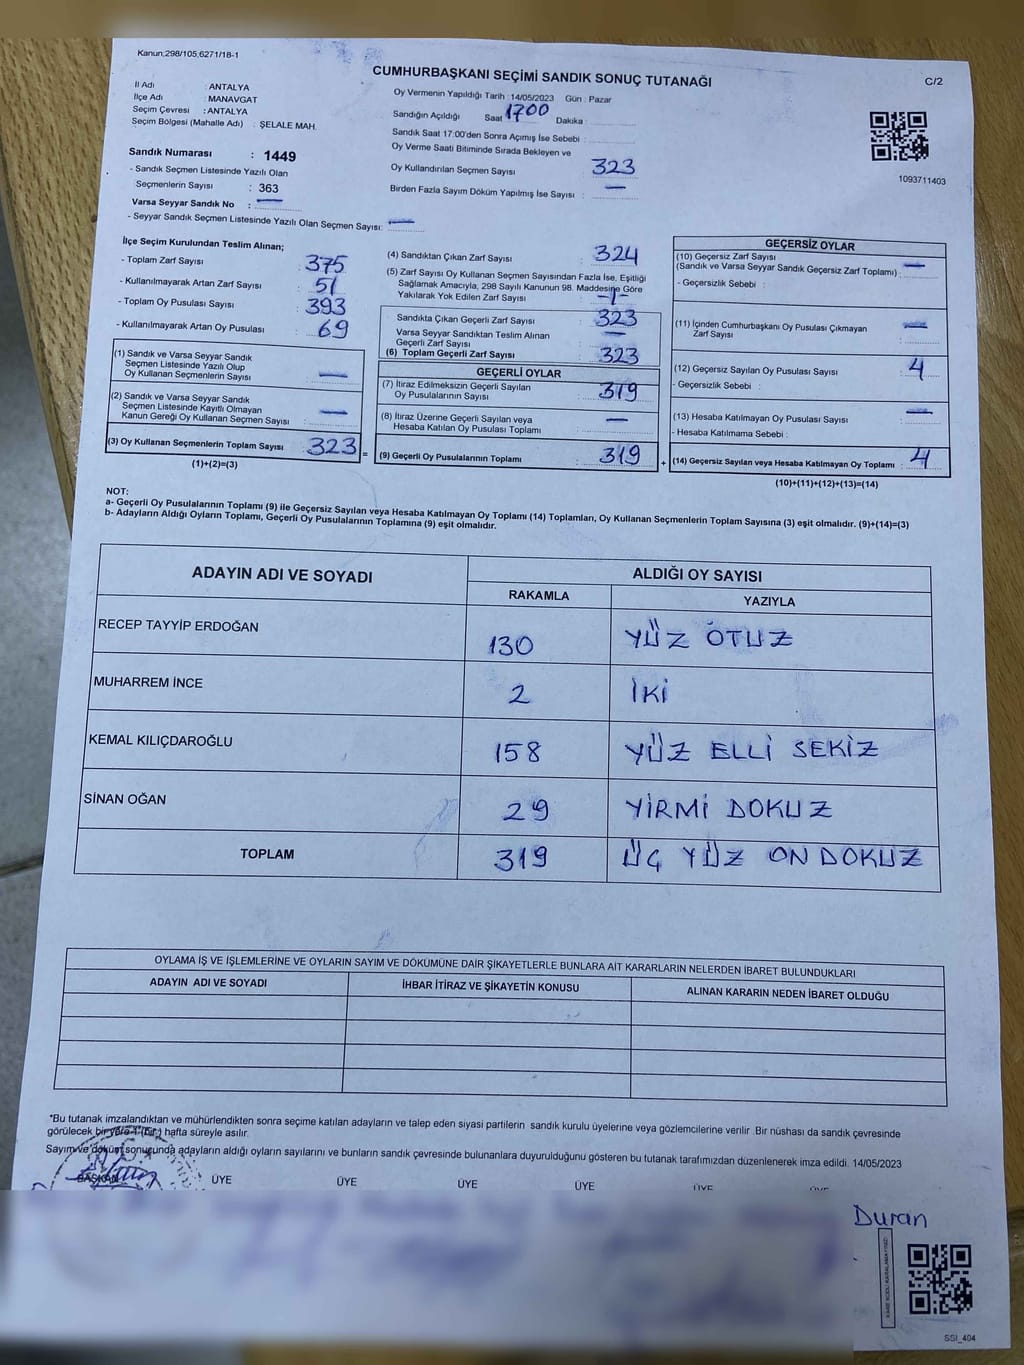 Kanun;298/105,6271/18-1
CUMHURBAŞKANI SEÇİMİ SANDIK SONUÇ TUTANAĞI
C/2
İl Adı : ANTALYA
İlçe Adı : MANAVGAT
Seçim Çevresi : ANTALYA
Seçim Bölgesi (Mahalle Adı) : ŞELALE MAH.
Oy Vermenin Yapıldığı Tarih :14/05/2023 Gün : Pazar
Sandığın Açıldığı Saat 1700 Dakika :
Sandık Saat 17:00'den Sonra Açımış İse Sebebi :
Oy Verme Saati Bitiminde Sırada Bekleyen ve
Oy Kullandırılan Seçmen Sayısı : 323
Birden Fazla Sayım Döküm Yapılmış İse Sayısı : —
1093711403
Sandık Numarası : 1449
- Sandık Seçmen Listesinde Yazılı Olan
Seçmenlerin Sayısı : 363
Varsa Seyyar Sandık No : —
- Seyyar Sandık Seçmen Listesinde Yazılı Olan Seçmen Sayısı: —
İlçe Seçim Kurulundan Teslim Alınan;
- Toplam Zarf Sayısı : 375
- Kullanılmayarak Artan Zarf Sayısı : 51
- Toplam Oy Pusulası Sayısı : 393
- Kullanılmayarak Artan Oy Pusulası : 69
(1) Sandık ve Varsa Seyyar Sandık
Seçmen Listesinde Yazılı Olup
Oy Kullanan Seçmenlerin Sayısı : —
(2) Sandık ve Varsa Seyyar Sandık
Seçmen Listesinde Kayıtlı Olmayan
Kanun Gereği Oy Kullanan Seçmen Sayısı : —
(3) Oy Kullanan Seçmenlerin Toplam Sayısı : 323 =
(1)+(2)=(3)
(4) Sandıktan Çıkan Zarf Sayısı : 324
(5) Zarf Sayısı Oy Kullanan Seçmen Sayısından Fazla İse, Eşitliği
Sağlamak Amacıyla, 298 Sayılı Kanunun 98. Maddesine Göre
Yakılarak Yok Edilen Zarf Sayısı : -1-
Sandıkta Çıkan Geçerli Zarf Sayısı : 323
Varsa Seyyar Sandıktan Teslim Alınan
Geçerli Zarf Sayısı : —
(6) Toplam Geçerli Zarf Sayısı : 323
GEÇERLİ OYLAR
(7) İtiraz Edilmeksizin Geçerli Sayılan
Oy Pusulalarının Sayısı : 319
(8) İtiraz Üzerine Geçerli Sayılan veya
Hesaba Katılan Oy Pusulası Toplamı : —
(9) Geçerli Oy Pusulalarının Toplamı : 319 +
GEÇERSİZ OYLAR
(10) Geçersiz Zarf Sayısı
(Sandık ve Varsa Seyyar Sandık Geçersiz Zarf Toplamı) : —
- Geçersizlik Sebebi :
(11) İçinden Cumhurbaşkanı Oy Pusulası Çıkmayan
Zarf Sayısı : —
(12) Geçersiz Sayılan Oy Pusulası Sayısı : 4
- Geçersizlik Sebebi :
(13) Hesaba Katılmayan Oy Pusulası Sayısı : —
- Hesaba Katılmama Sebebi :
(14) Geçersiz Sayılan veya Hesaba Katılmayan Oy Toplamı : 4
(10)+(11)+(12)+(13)=(14)
NOT:
a- Geçerli Oy Pusulalarının Toplamı (9) ile Geçersiz Sayılan veya Hesaba Katılmayan Oy Toplamı (14) Toplamları, Oy Kullanan Seçmenlerin Toplam Sayısına (3) eşit olmalıdır. (9)+(14)=(3)
b- Adayların Aldığı Oyların Toplamı, Geçerli Oy Pusulalarının Toplamına (9) eşit olmalıdır.
ADAYIN ADI VE SOYADI ALDIĞI OY SAYISI
RAKAMLA YAZIYLA
RECEP TAYYİP ERDOĞAN 130 YÜZ OTUZ
MUHARREM İNCE 2 İKİ
KEMAL KILIÇDAROĞLU 158 YÜZ ELLİ SEKİZ
SİNAN OĞAN 29 YİRMİ DOKUZ
TOPLAM 319 ÜÇ YÜZ ON DOKUZ
OYLAMA İŞ VE İŞLEMLERİNE VE OYLARIN SAYIM VE DÖKÜMÜNE DAİR ŞİKAYETLERLE BUNLARA AİT KARARLARIN NELERDEN İBARET BULUNDUKLARI
ADAYIN ADI VE SOYADI İHBAR İTİRAZ VE ŞİKAYETİN KONUSU ALINAN KARARIN NEDEN İBARET OLDUĞU
*Bu tutanak imzalandıktan ve mühürlendikten sonra seçime katılan adayların ve talep eden siyasi partilerin sandık kurulu üyelerine veya gözlemcilerine verilir. Bir nüshası da sandık çevresinde
görülecek bir yere 1 (bir) hafta süreyle asılır.
Sayım ve döküm sonucunda adayların aldığı oyların sayılarını ve bunların sandık çevresinde bulunanlara duyurulduğunu gösteren bu tutanak tarafımızdan düzenlenerek imza edildi. 14/05/2023
BAŞKAN ÜYE ÜYE ÜYE ÜYE ÜYE
Duran
SSI_404